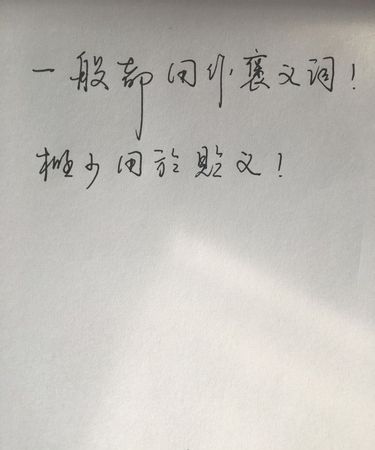 一般都用作褒义词！
极少用於贬义！